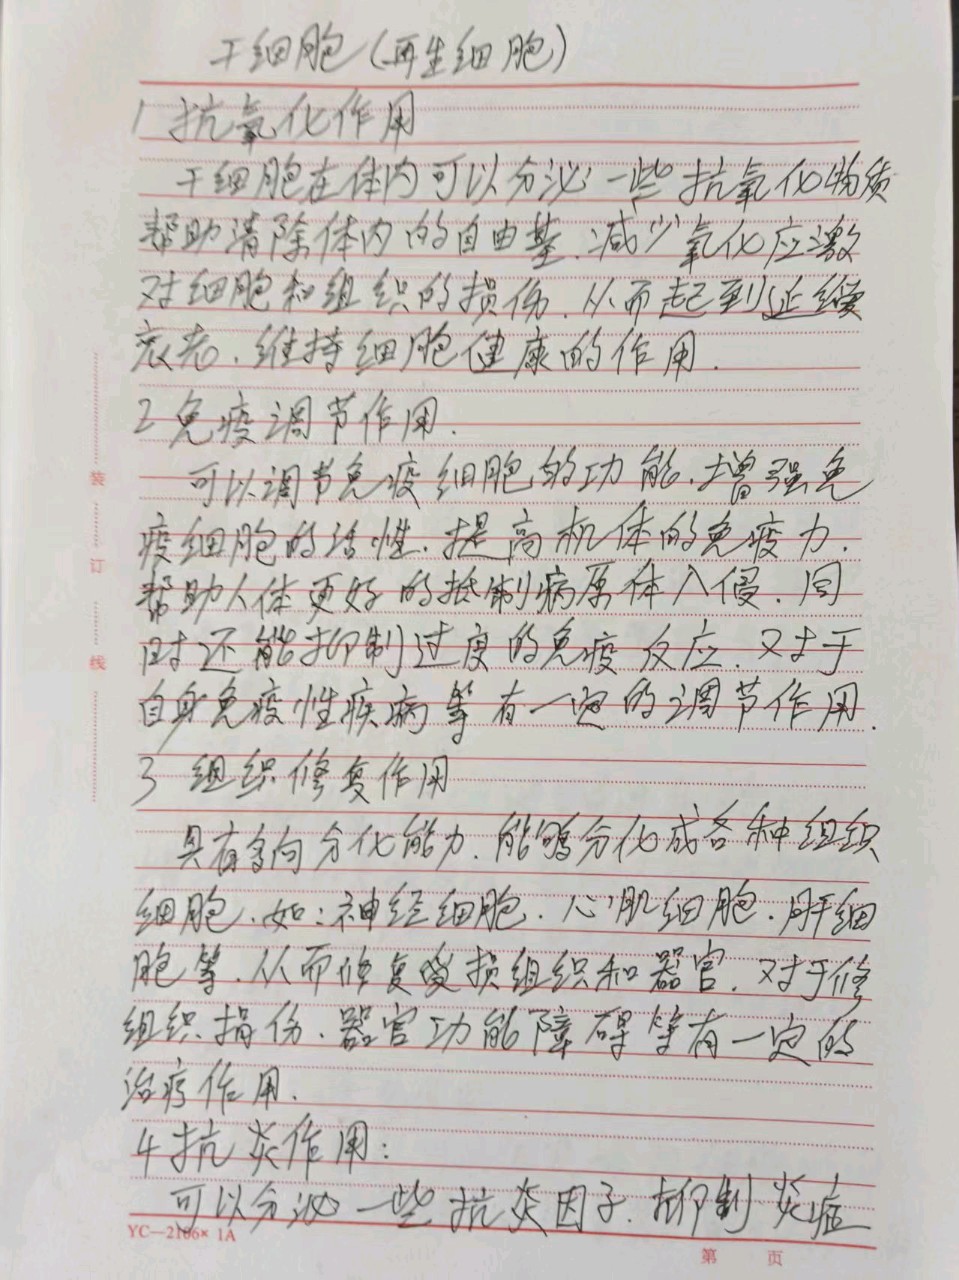 干细胞(再生细胞)
1 抗氧化作用
干细胞在体内可以分泌一些抗氧化物质
帮助清除体内的自由基.减少氧化应激
对细胞和组织的损伤.从而起到延缓
衰老.维持细胞健康的作用.
2 免疫调节作用.
可以调节免疫细胞的功能.增强免
疫细胞的活性.提高机体的免疫力.
帮助人体更好的抵制病原体入侵.同
时还能抑制过度的免疫反应.对于
自身免疫性疾病等有一定的调节作用.
3 组织修复作用
具有多向分化能力.能够分化成各种组织
细胞.如:神经细胞.心肌细胞.肝细
胞等.从而修复受损组织和器官.对于修
组织损伤.器官功能障碍等有一定的
治疗作用.
4 抗炎作用:
可以分泌一些抗炎因子.抑制炎症
装
订
线
YC—2106× 1A
第 页